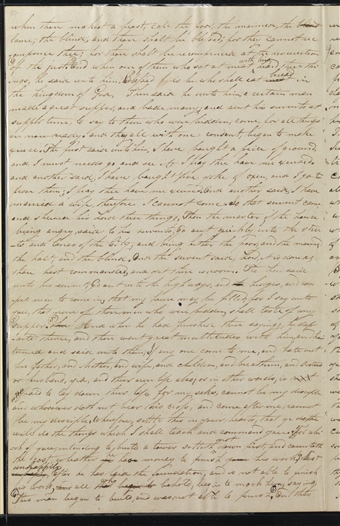 when thou makest a feast, call the poor, the maimed, the
lame, the blind, and thou shalt be blessed, for they cannot
recompense thee; for thou shalt be recompensed at the resurrection
of the just. And when one of them who sat at meat with him, heard these
things, he said unto him, Blessed is he who shall eat bread in
the kingdom of God. Then said he unto him, a certain man
made a great supper, and bade many, and sent his servants at
supper time, to say to them who were bidden, come, for all things
are now ready; and they all with one consent, began to make
excuse. The first said unto him, I have bought a piece of ground,
and I must needs go and see it, I pray thee have me excused;
and another said, I have bought five yoke of oxen, and I go to
prove them, I pray thee have me excused; and another said, I have
married a wife, therefore I cannot come. So that servant came
and shewed his Lord these things. Then the master of the house
being angry, said to his servants, Go out quickly into the streets
and lanes of the city, and bring hither the poor, and the maimed,
the halt, and the blind. And the servant said, Lord, it is done as
thou hast commanded, and yet there is room. The Lord said
unto his servant, Go out into the highways, and hedges, and com
pel men to come in, that my house may be filled, for I say unto
you, that none of those men who were bidden, shall taste of my
supper. And when he had finished these sayings, he departed
thence, and there went great multitudes with him, and he
turned and said unto them, If any one come to me, and hate not
his father, and mother, and wife, and children, and brethren, and sisters
or husband, yea, and their own life also, or in other words, is
afraid to lay down his life for my sake, cannot be my disciple
and whosoever doth not bear his cross, and come after me, cannot
be my disciple; wherefore, settle this in your hearts, that ye
will do the things which I shall teach and command you. For which
of you intending to build a tower, sitteth not down first, and counteth
the cost, whether he have money to finish his work? lest
unhappily after he has laid the foundation, and is not able to finish
his work, all who behold, begin to mock him, saying,
This man began to build, and was not able to finish.